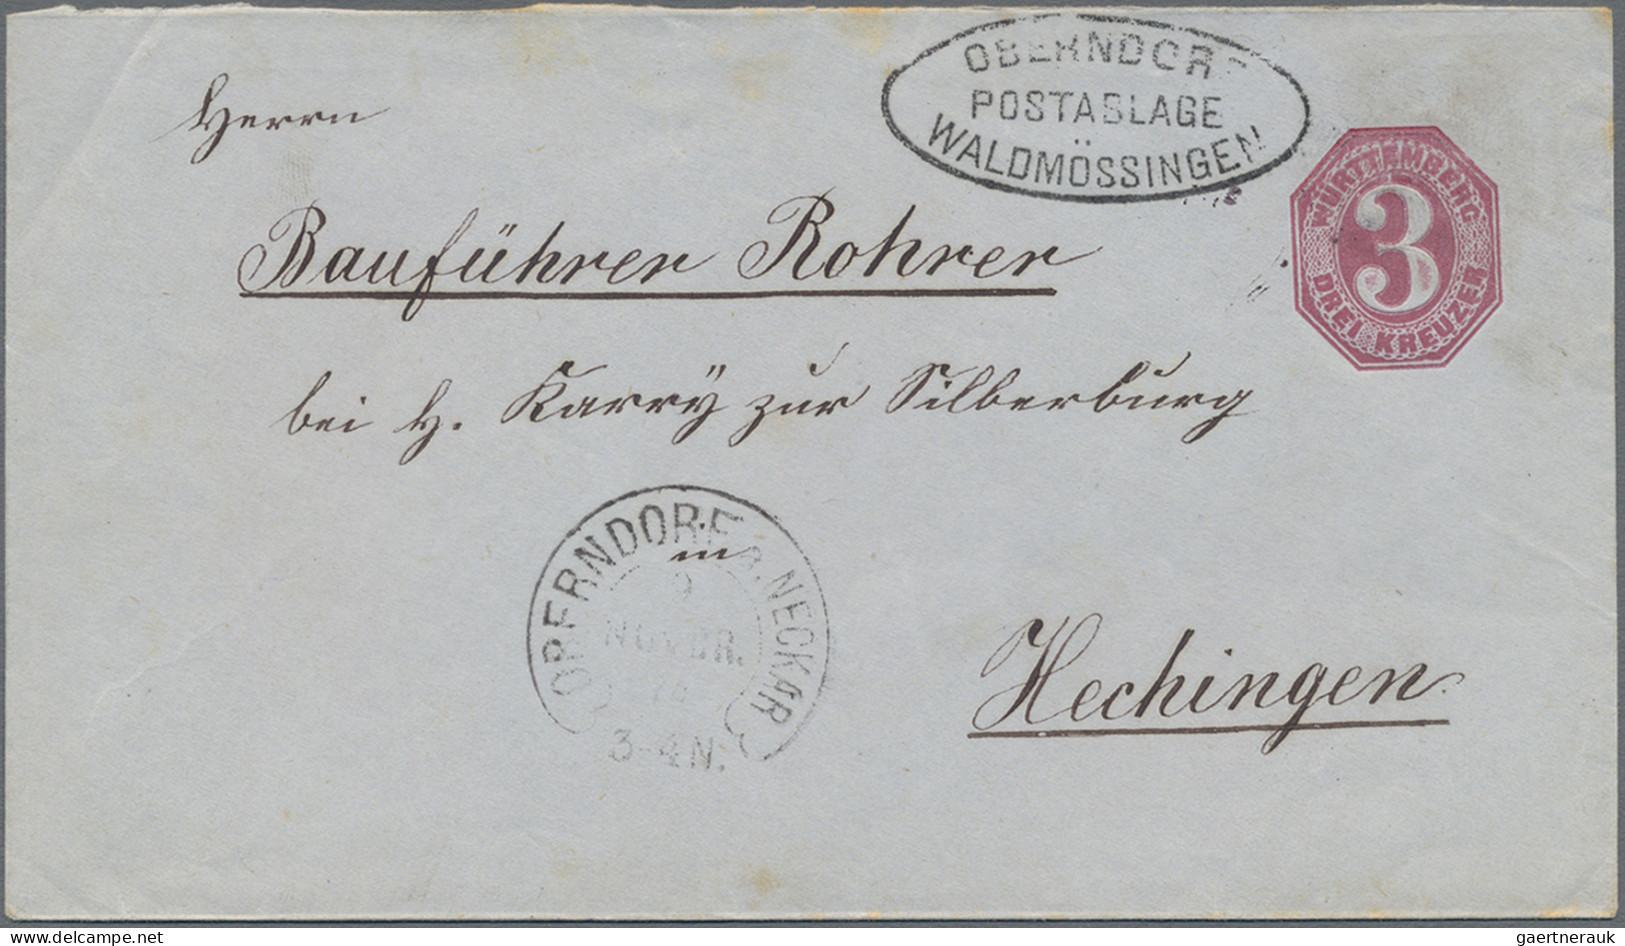 OBERNDORF
POSTABLAGE
WALDMÖSSINGEN
WÜRTTEMBERG
3
DREI KREUZER
Herrn
Bauführer Rohrer
bei H. Karrÿ zur Silberburg
OBERNDORF a. NECKAR
9
NOVBR.
3-4 N.
in
Hechingen.
www.delcampe.net
gaertnerauk